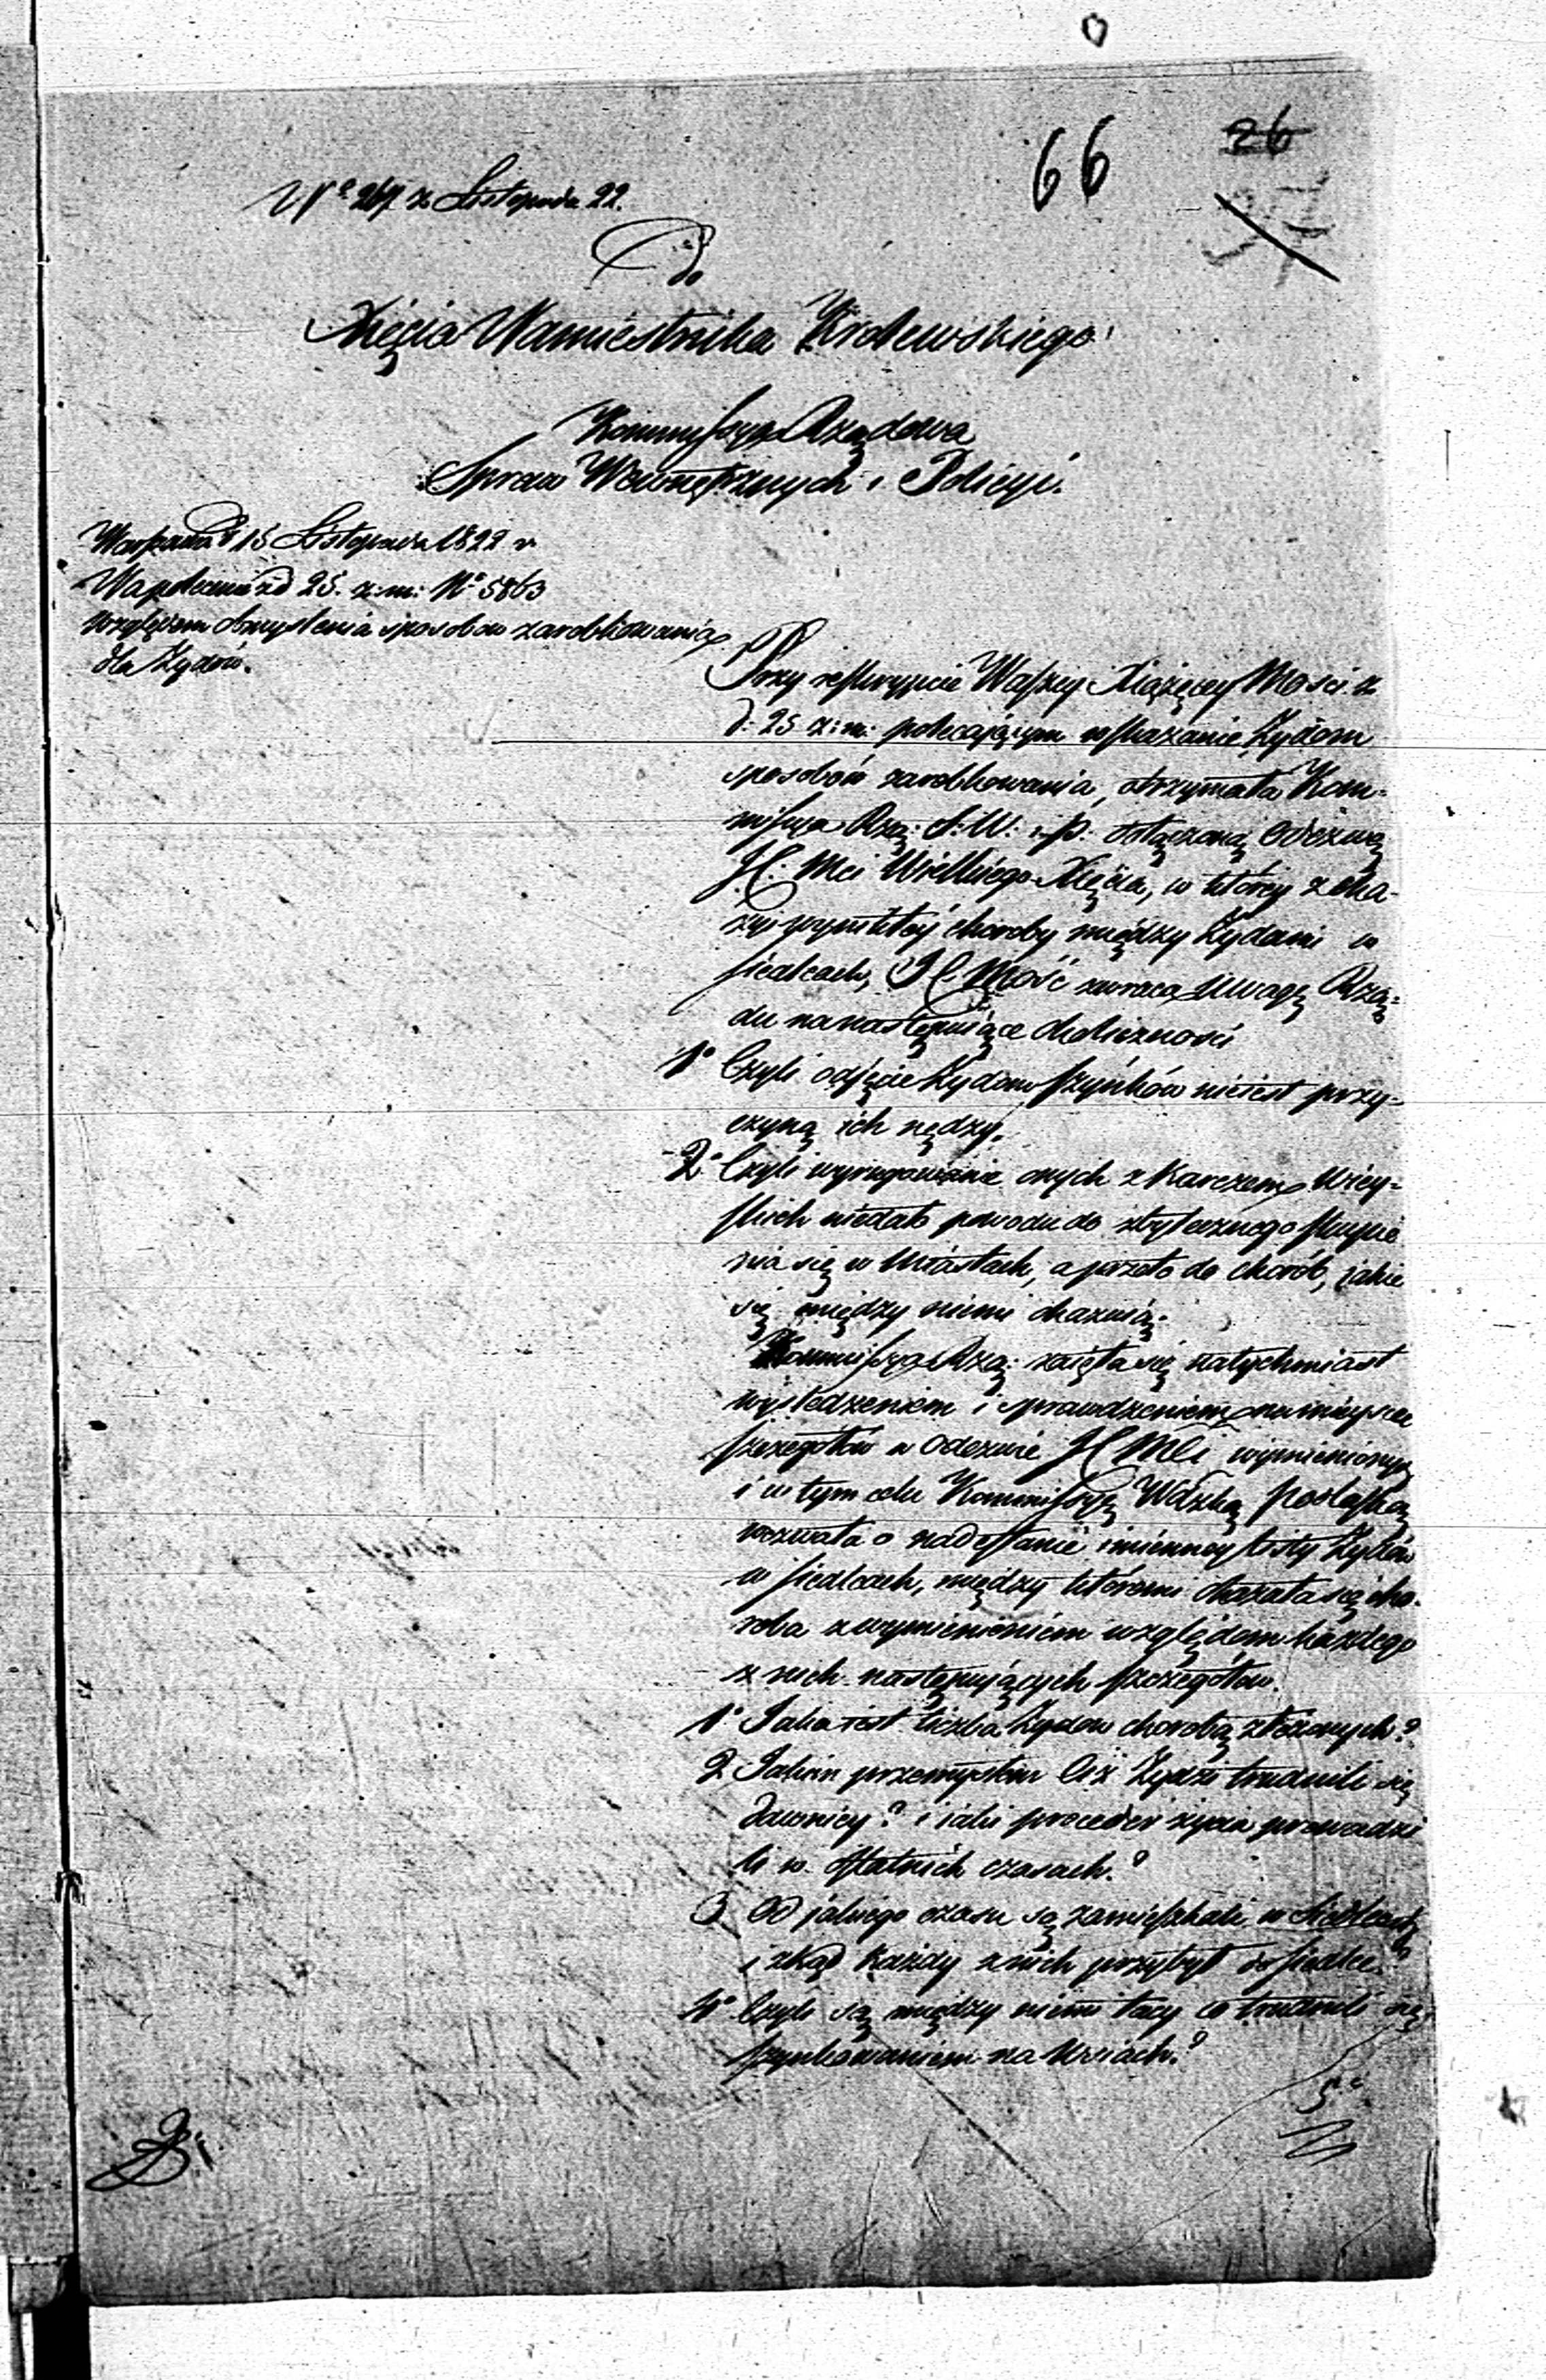 66
26
Nº 267 z Listopada 22.
Do
Xięcia Namiestnika Królewskiego
Kommissya Rządowa
Spraw Wewnętrznych i Policyi.
Warszawa d 15 Listopada 1822 r
Na polecenie d 25. z: m: Nº 5863
względem obmyślenia sposobów zarobkowania
dla Żydów.
Przy reskrypcie Waszey Xiążęcey Mości z
d: 25 z: m: polecającym wskazanie Żydom
sposobów zarobkowania, otrzymała Kom-
missya Rzą: S: W: i P. dołączoną Odezwę
J. C. Mci Wielkiego Xięcia, w którey z oka-
zyi wynikłéy choroby między Żydami w
Siedlcach, J C Mość zwraca Uwagę Rzą-
du na następuiące okoliczności
1º Czyli odjęcie Żydom szynków nieiest przy-
czyną ich nędzy.
2º Czyli wyrugowanie onych z Karczem Wiey-
skich niedało powodu do zbytecznego skupie
nia się w Miastach, a przeto do chorób, jakie
się między niemi okazuią.
Kommissya Rzą: zaięła się natychmiast
wyśledzeniem i sprawdzeniem na mieyscu
szczegółów w Odezwie J C Mci wymienionych
i w tym celu Kommissyą Wdzką Podlaską
wezwała o nadesłanie imienney listy Żydów
w Siedlcach, między któremi okazała się cho-
roba z wymienieniem względem każdego
z nich następujących szczegółów.
1º Jaka iest liczba Żydów chorobą złożonych?
2 Jakim przemysłem Ciż Żydzi trudnili się
dawniey? i iaki proceder życia prowadzi
li w ostatnich czasach?
3 Od jakiego czasu są zamieszkali w Siedlcach
i zkąd każdy z nich przybył do Siedlec?
4º Czyli są między niemi tacy co trudnili się
szynkowaniem na Wsiach?
5º